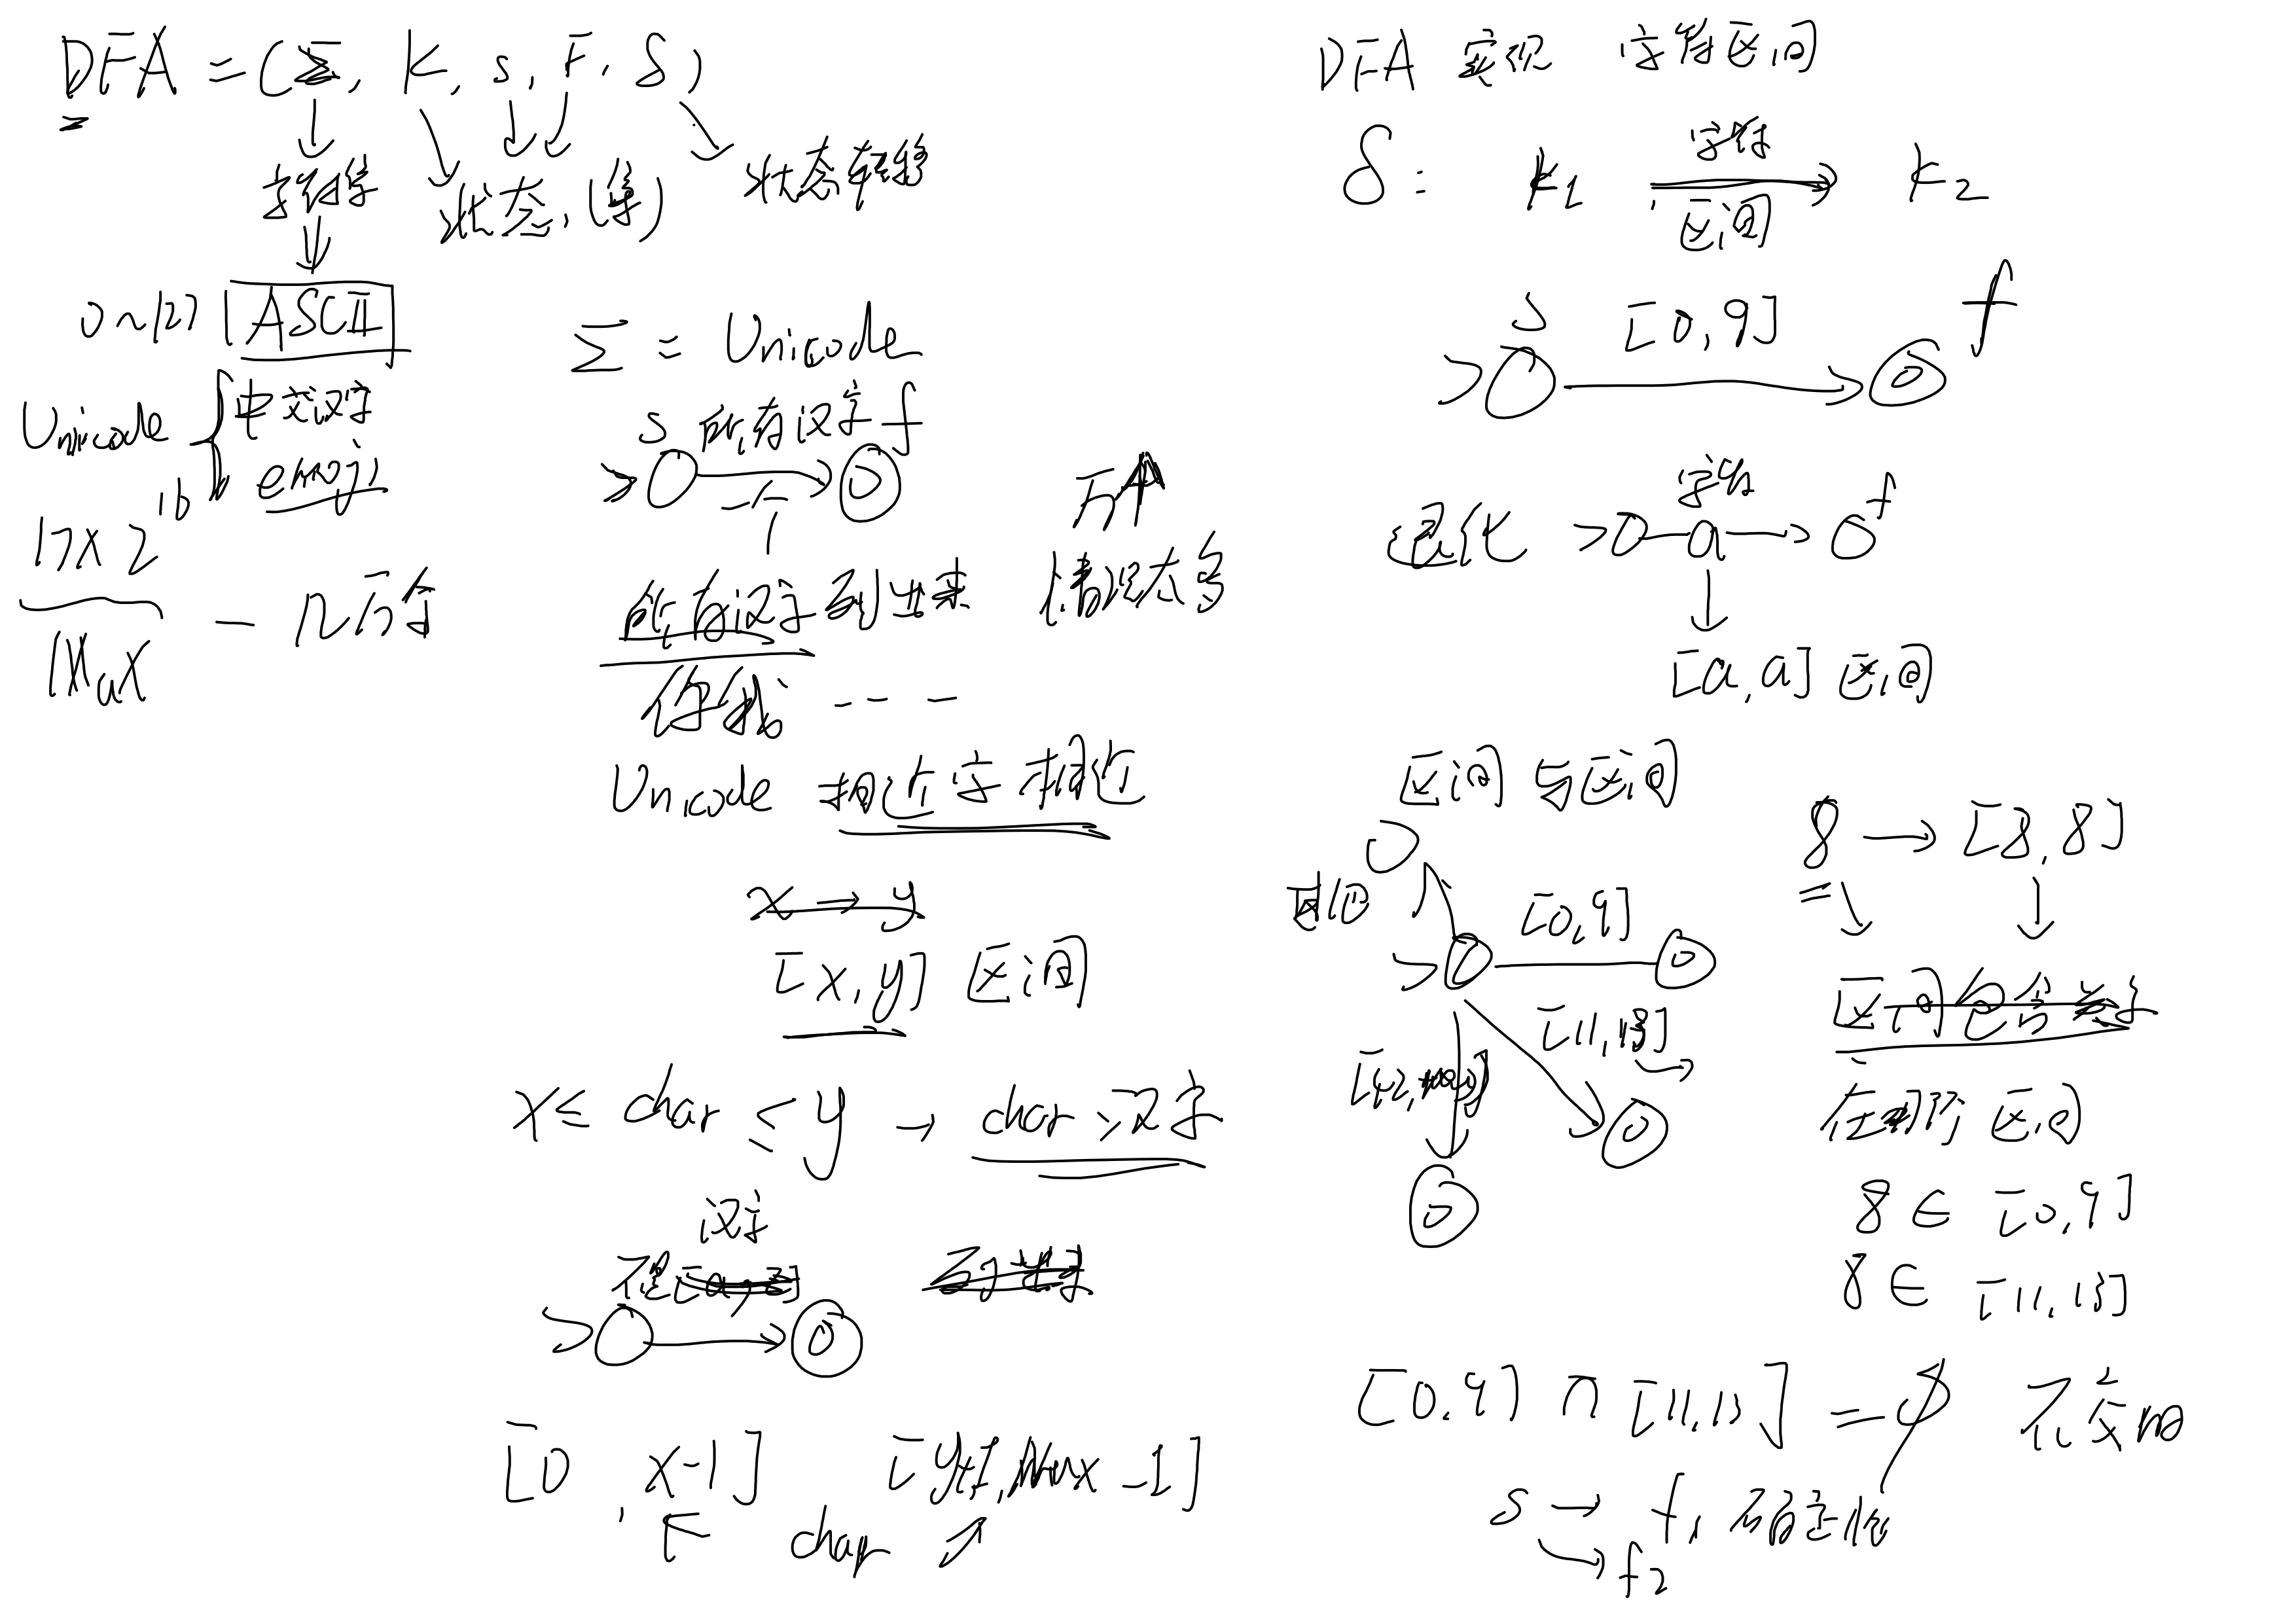 DFA = (Σ, K, s, F, δ)
字符集
状态, (集)
状态转移
0~127 ASCII
Unicode { 中文汉字
emoji
17 x 2^16
Max
- 几万字
Σ = Unicode
s 所有汉字 f
所有汉字列出来
情况太多
你我 ……
Unicode 把这字相近
x → y
[x, y] 区间
x ≤ char ≤ y → char 汉字
汉字
不在
[0, x-1] [y+1, Max -1]
char
DFA 实现 字符区间
δ: k1 字符 k2
区间
s [0,9] f
退化 字符 a f
[a, a] 区间
区间与区间
8 → [8, 8]
[0, 9]
[11, 13]
区间包含关系
在哪个区间
8 ∈ [0, 9]
8 ∈ [11, 13]
[0, 9] ∩ [11, 13] = ∅ 不交叉
s → f1 不确定性
→ f2